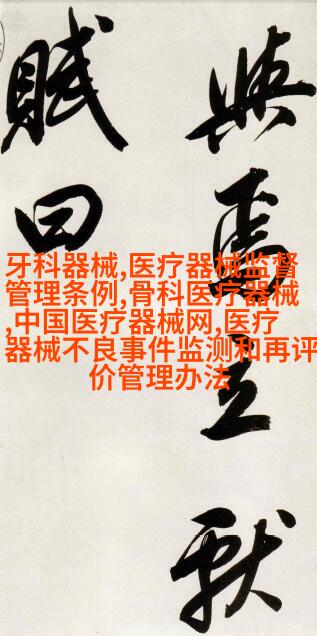 與焉立獻
賦曰
牙科器械,医疗器械监督
管理条例,骨科医疗器械
,中国医疗器械网,医疗
器械不良事件监测和再评
价管理办法